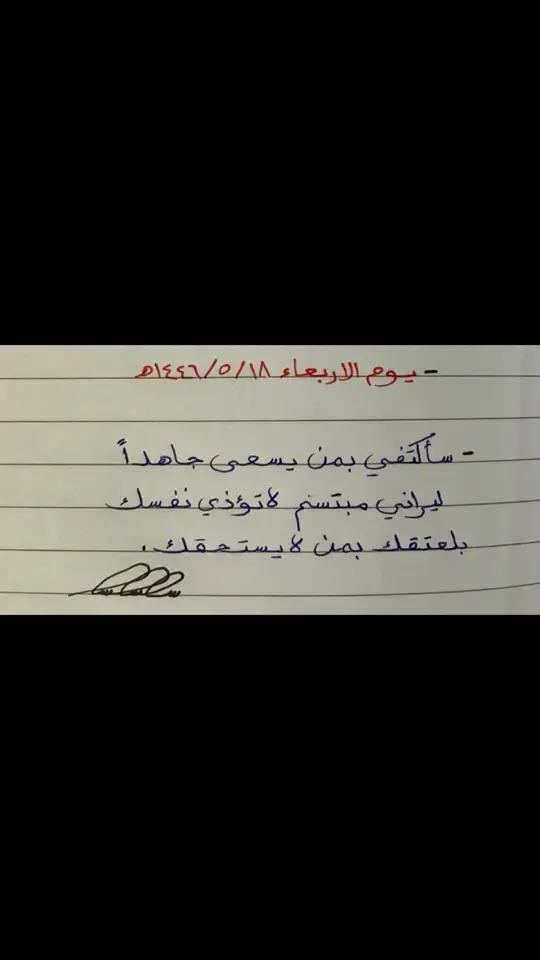 - يوم الاربعاء ١٤٤٦/٥/١٨ه
- سأكتفي بمن يسعى جاهداً
ليراني مبتسم لاتؤذي نفسك
بلعتقك بمن لايستحقك.